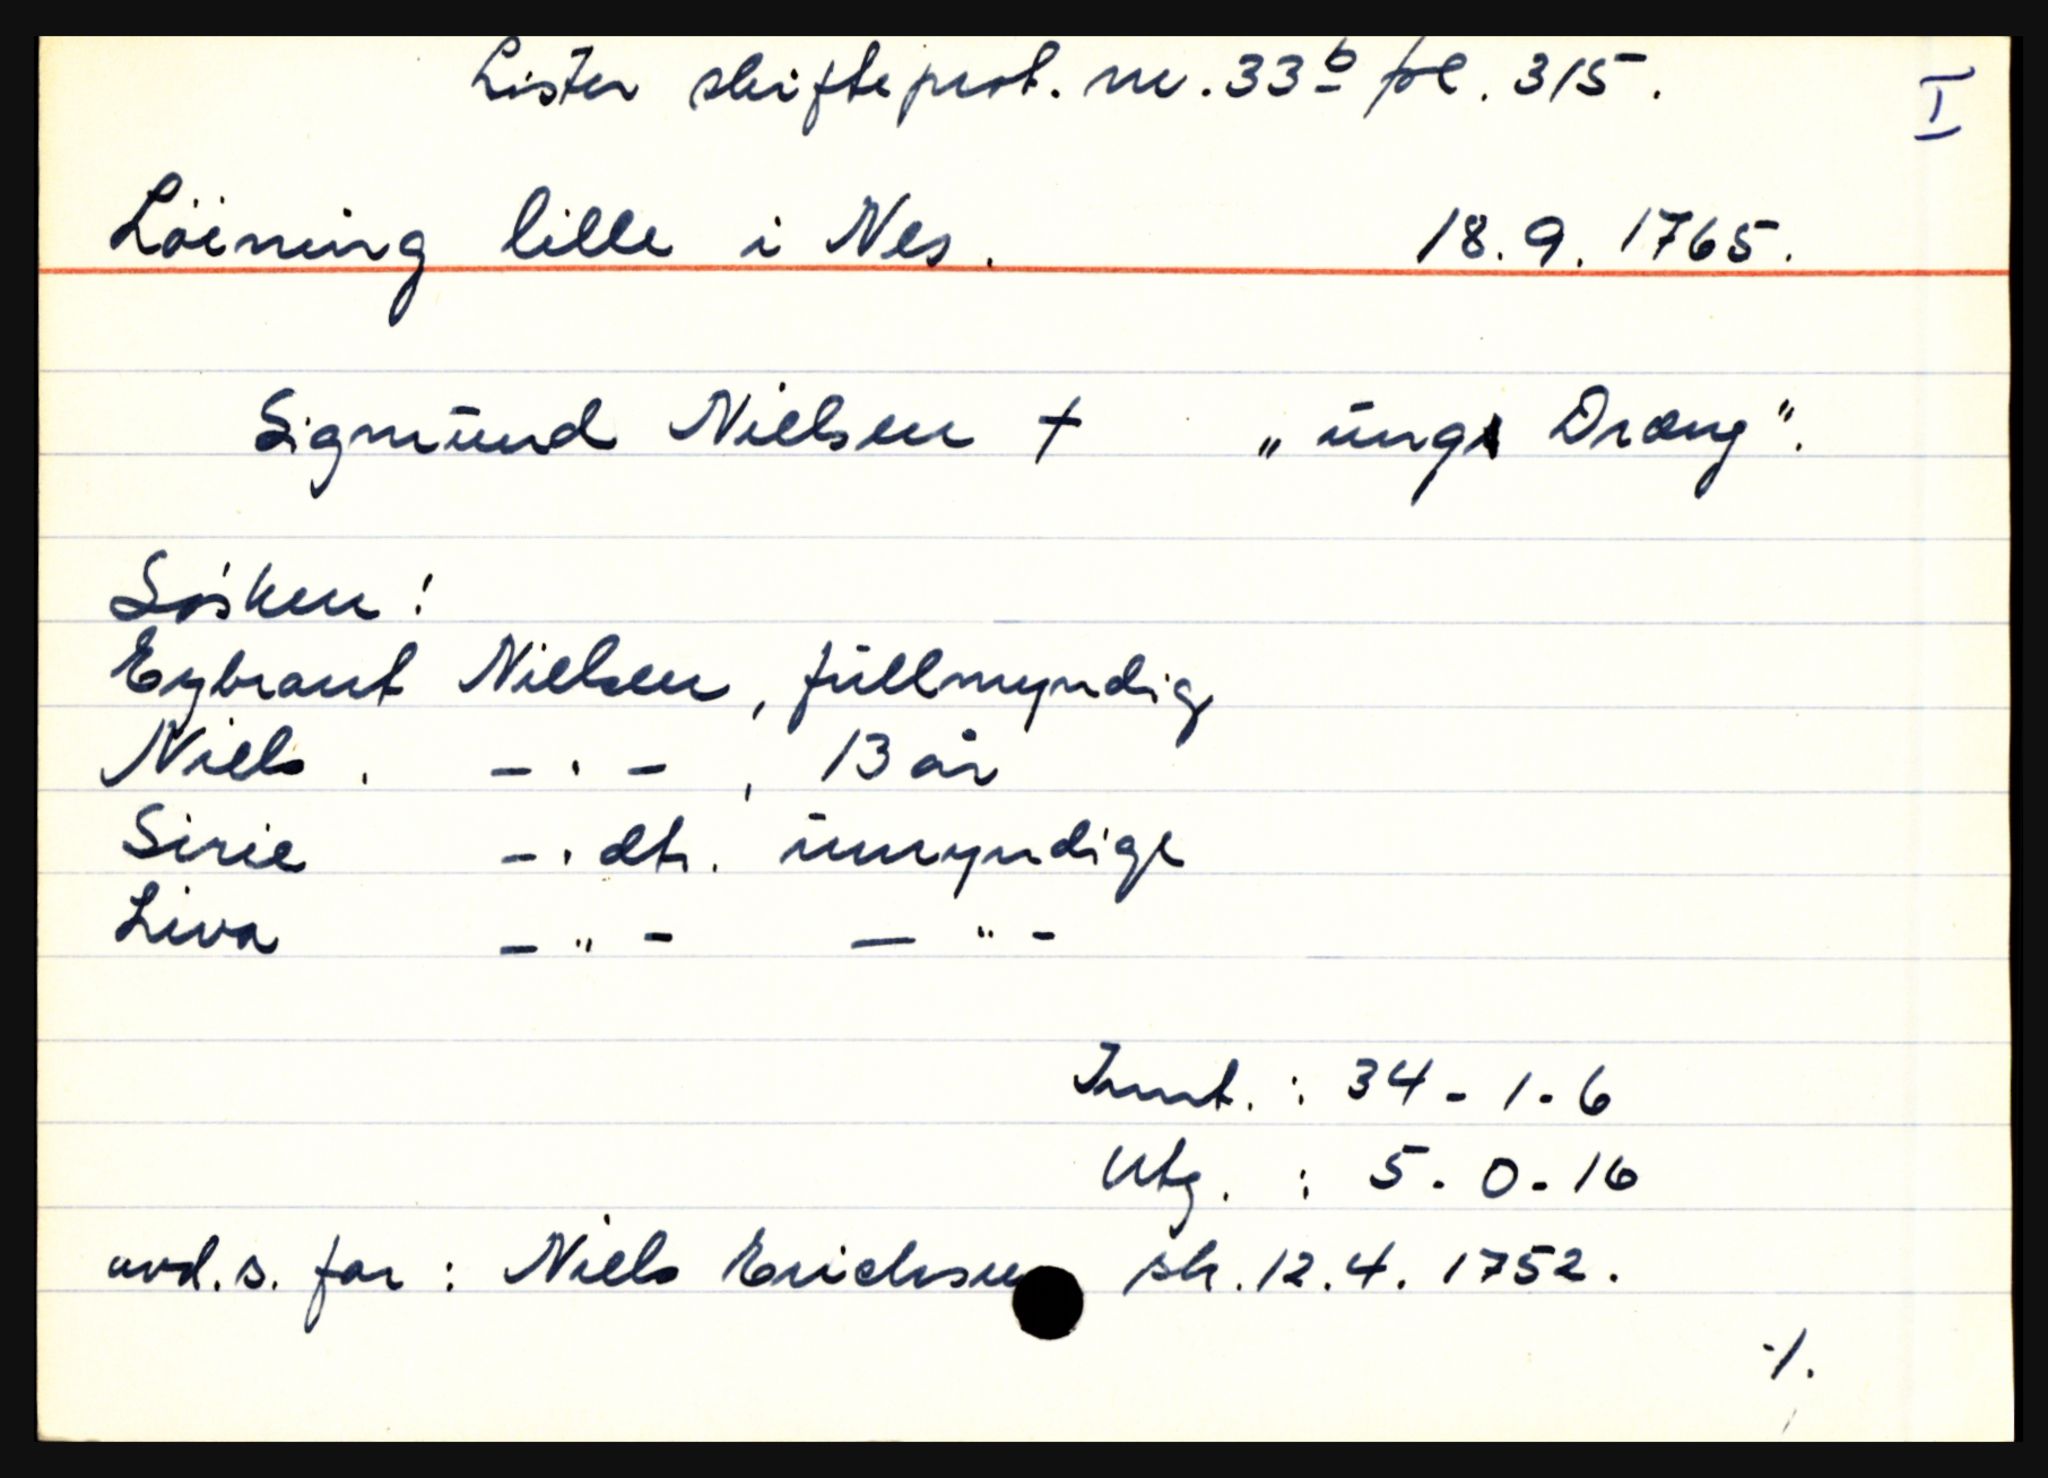 Lister skifteprot. nr. 33 b fol. 315.
I
Löining lille i Nes. 18.9.1765.
Sigmund Nielsen † „ung Dræng".
Søsken:
Eybrant Nielsen, fullmyndig
Niels. - . - , 13 år
Sirie - . dtr. umyndige
Liva - " - - " -
Innt. : 34 - 1 - 6
Utg. : 5 - 0 - 16
avd. s. far : Niels Erichsen sk. 12.4.1752.
./.